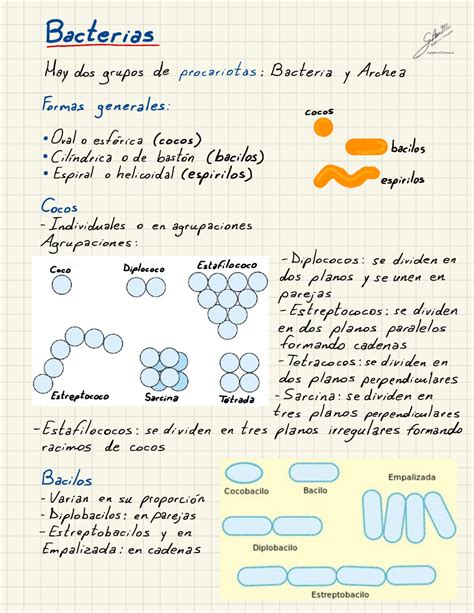 Bacterias
Hay dos grupos de procariotas: Bacteria y Archea
Formas generales:
• Oval o esférica (cocos)
• Cilíndrica o de bastón (bacilos)
• Espiral o helicoidal (espirilos)
cocos
bacilos
espirilos
Cocos
- Individuales o en agrupaciones
Agrupaciones:
Coco
Diplococo
Estafilococo
Estreptococo
Sarcina
Tétrada
- Diplococos: se dividen en
dos planos y se unen en
parejas
- Estreptococos: se dividen
en dos planos paralelos
formando cadenas
- Tetracocos: se dividen en
dos planos perpendiculares
- Sarcina: se dividen en
tres planos perpendiculares
- Estafilococos: se dividen en tres planos irregulares formando
racimos de cocos
Bacilos
- Varian en su proporción
- Diplobacilos: en parejas
- Estreptobacilos y en
Empalizada: en cadenas
Cocobacilo
Bacilo
Empalizada
Diplobacilo
Estreptobacilo